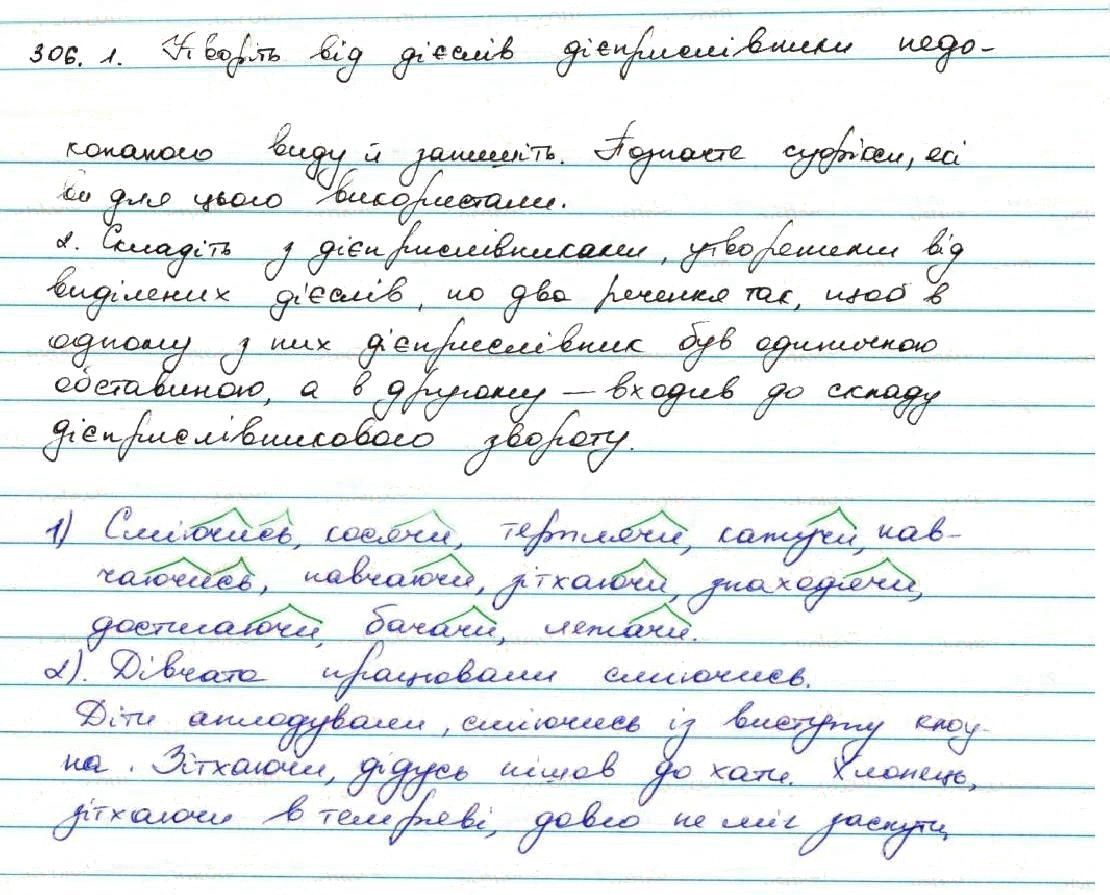 306. 1. Утворіть від дієслів дієприслівники недо-
конаного виду й запишіть. Позначте суфікси, які
ви для цього використали.
2. Складіть з дієприслівниками, утвореними від
виділених дієслів, по два речення так, щоб в
одному з них дієприслівник був одиничною
обставиною, а в другому – входив до складу
дієприслівникового звороту.
1) Сміючись, косячи, терплячи, кажучи, нав-
чаючись, навчаючи, зітхаючи, знаходячи,
достигаючи, бачачи, лежачи.
2). Дівчата працювали сміючись.
Діти аплодували, сміючись із виступу клоу-
на. Зітхаючи, дідусь пішов до хати. Хлопець,
зітхаючи в темряві, довго не міг заснути,